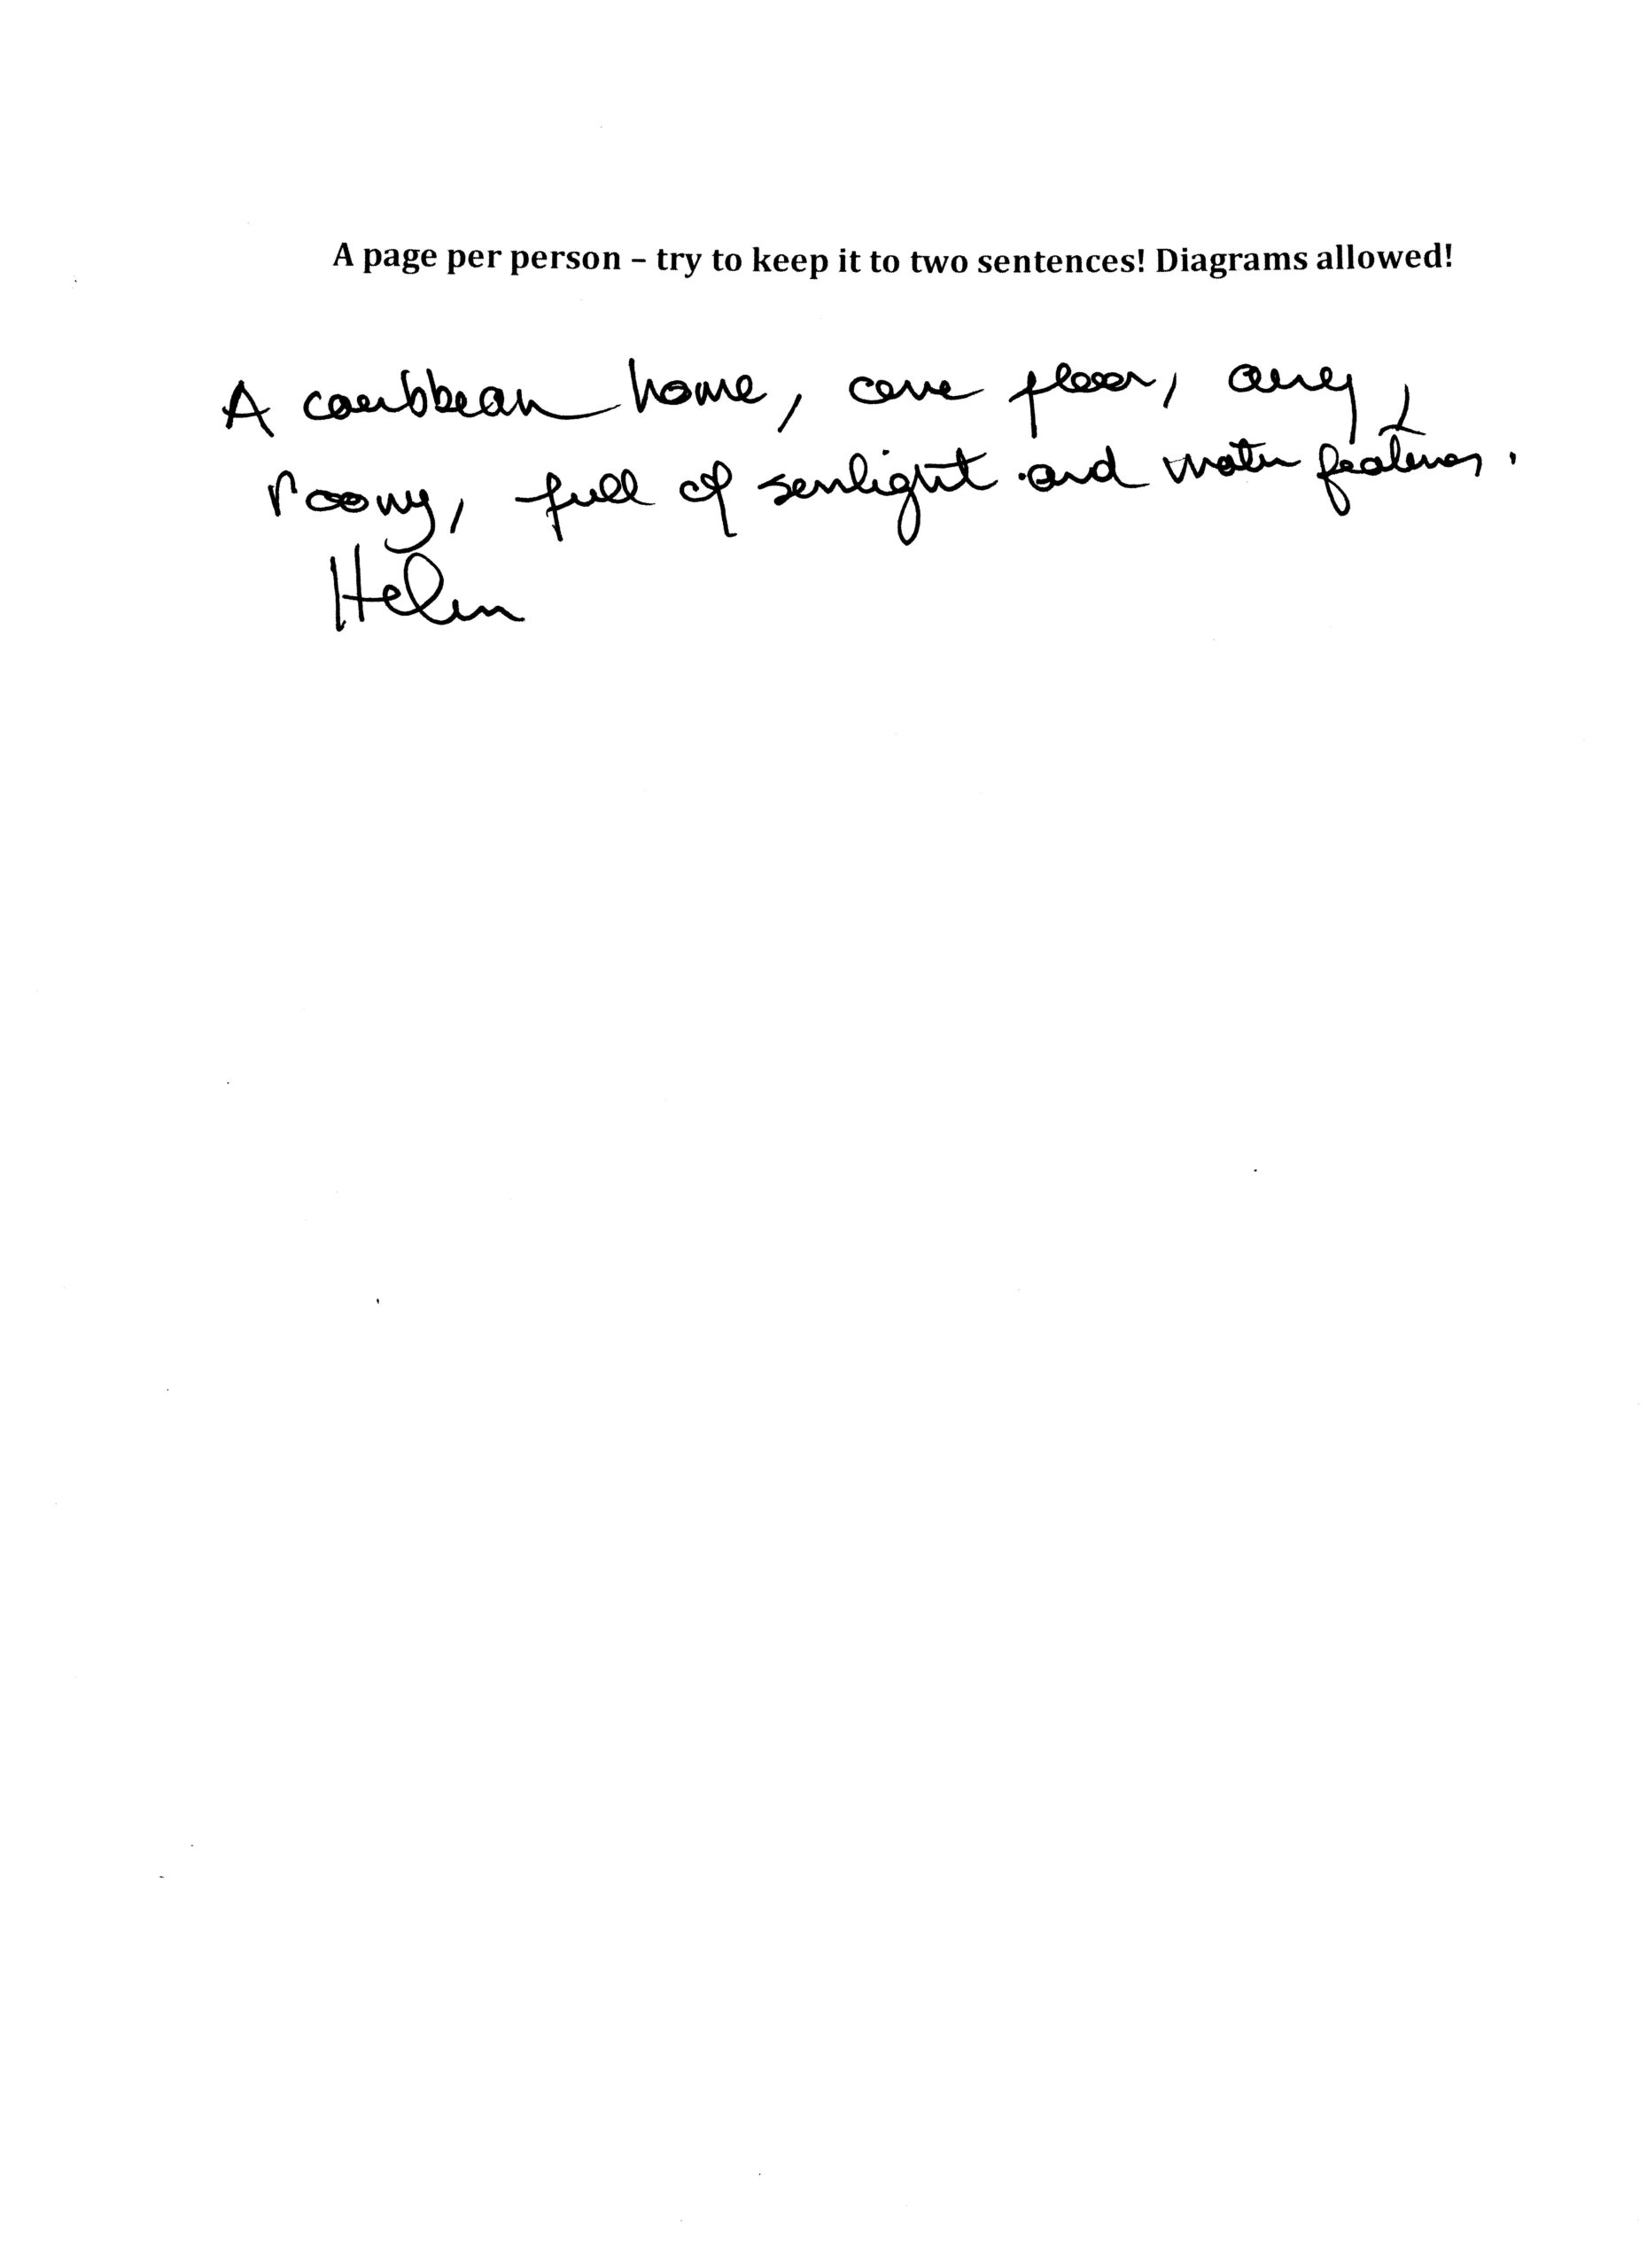 A page per person – try to keep it to two sentences! Diagrams allowed!
A caribbean home, floor, airy &
roomy, full of sunlight and water features.
Helen